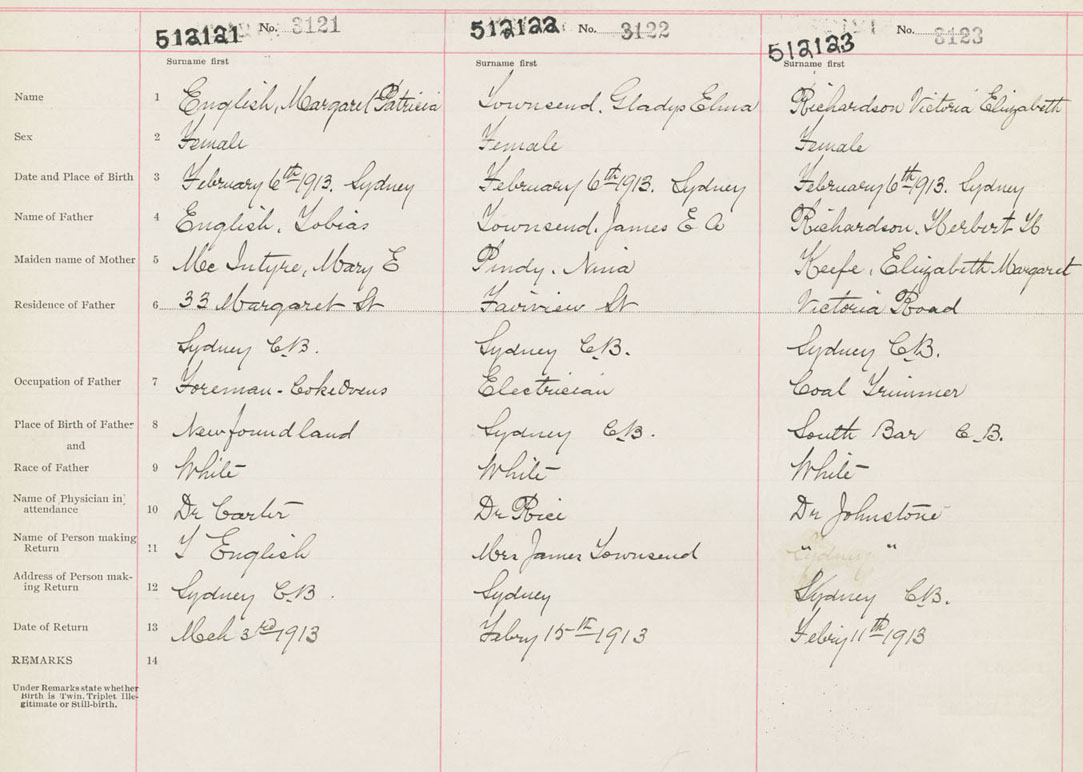 512121 No. 3121 512122 No. 3122 512123 No. 3123
Surname first Surname first Surname first
Name 1 English, Margaret Patricia Townsend. Gladys Elma Richardson Victoria Elizabeth
Sex 2 Female Female Female
Date and Place of Birth 3 February 6th 1913. Sydney February 6th 1913. Sydney February 6th 1913. Sydney
Name of Father 4 English, Tobias Townsend. James E A Richardson. Herbert H
Maiden name of Mother 5 Mc Intyre, Mary E Nina Keefe, Elizabeth Margaret
Residence of Father 6 33 Margaret St Fairview St Victoria Road
Sydney C.B. Sydney C.B. Sydney C.B.
Occupation of Father 7 Foreman - Coke Ovens Electrician Coal Trimmer
Place of Birth of Father 8 Newfoundland Sydney C.B. South Bar C.B.
and
Race of Father 9 White White White
Name of Physician in
attendance 10 Dr Carter Dr Rice Dr Johnstone
Name of Person making
Return 11 T English Mrs James Townsend " "
Address of Person mak-
ing Return 12 Sydney C.B. Sydney Sydney C.B.
Date of Return 13 Mch 3rd 1913 Febry 15th 1913 Febry 11th 1913
REMARKS 14
Under Remarks state whether
Birth is Twin, Triplet Ille-
gitimate or Still-birth.